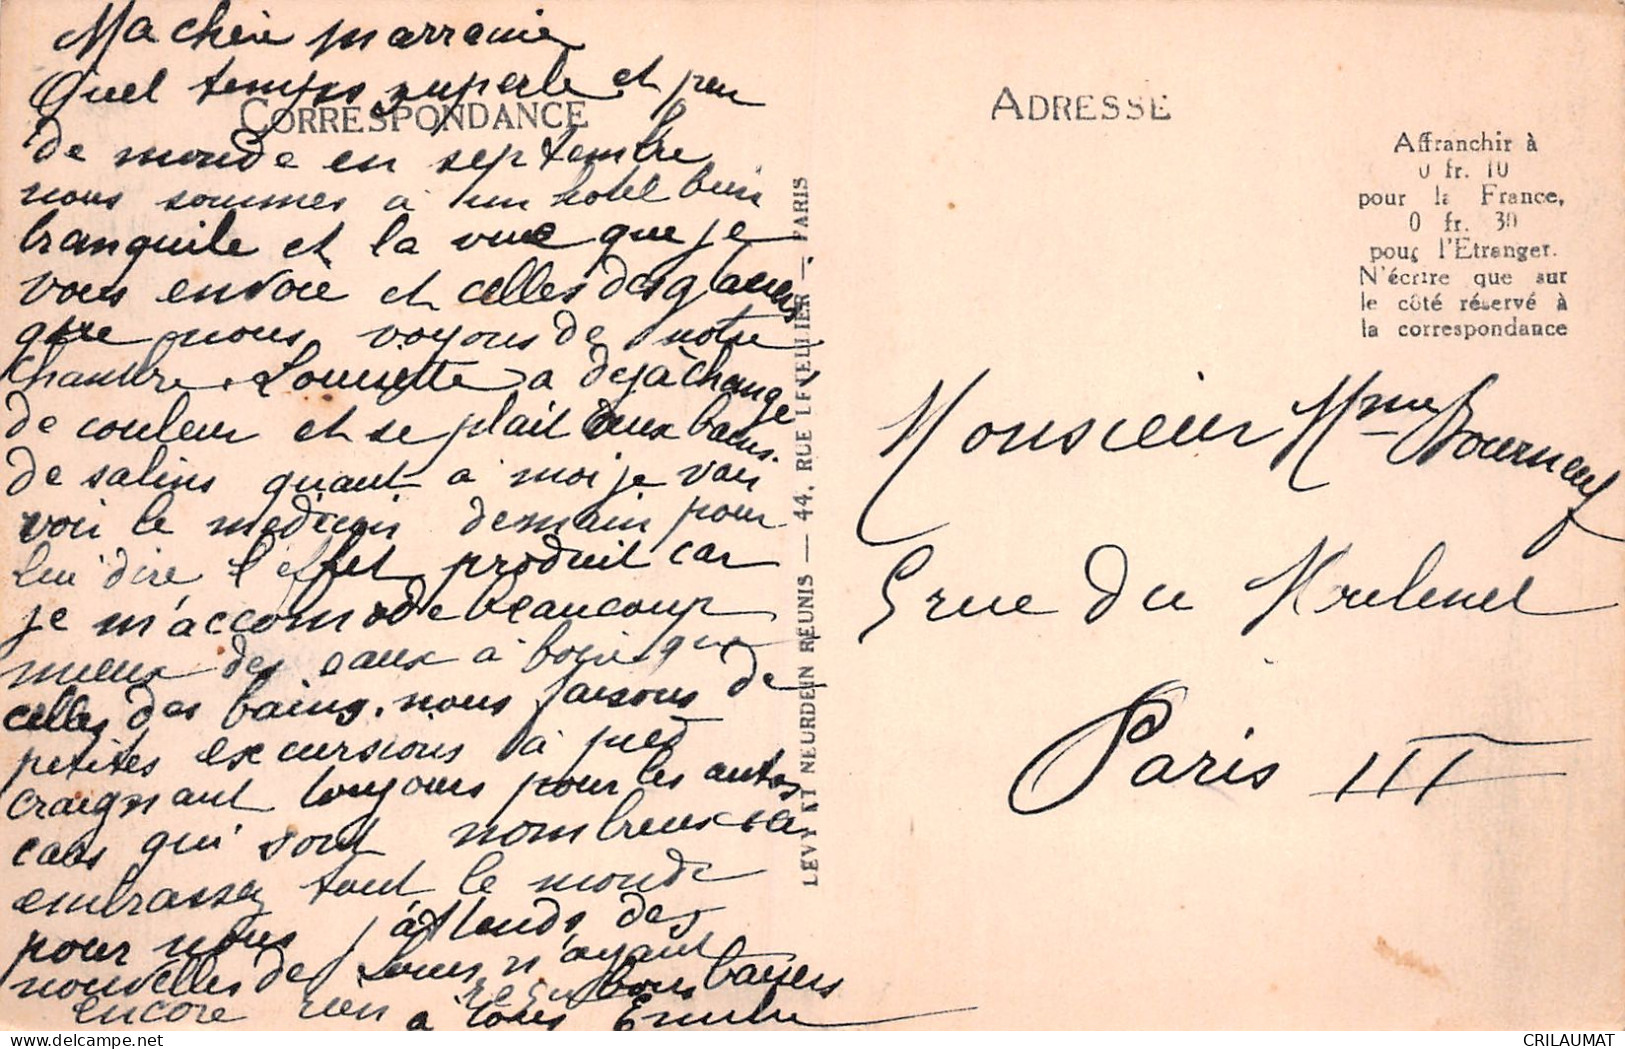 Ma chère marraine
Quel temps superbe et peu
CORRESPONDANCE
de monde en septembre
nous sommes à un hotel bien
tranquile et la vue que je
vous envoie et celles des glaciers
que nous voyons de notre
chambre. Louisette a déjà changé
de couleur et se plait aux bains
de salins quant a moi je vais
voir le medecin demain pour
lui dire l'effet produit car
je m'accomode beaucoup
mieux des eaux à boire que
celles des bains. nous faisons de
petites excursions à pied
craignant toujours pour les autos
cars qui sont nombreux
embrassez tout le monde
pour nous j'attends des
nouvelles de Louis n'ayant
encore rien reçu bons baisers
a tous Emilie
LEVY ET NEURDEIN REUNIS — 44, RUE LETELLIER — PARIS
ADRESSE
Affranchir à
0 fr. 10
pour la France,
0 fr. 30
pour l'Etranger.
N'écrire que sur
le côté réservé à
la correspondance
Monsieur Mme Bourneuf
5 rue du
Paris III
CRILAUMAT